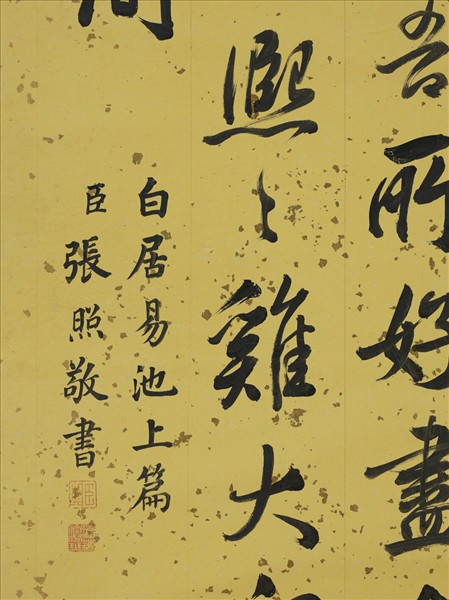 吾所好盡
熙〻雞大
間
白居易池上篇
臣張照敬書